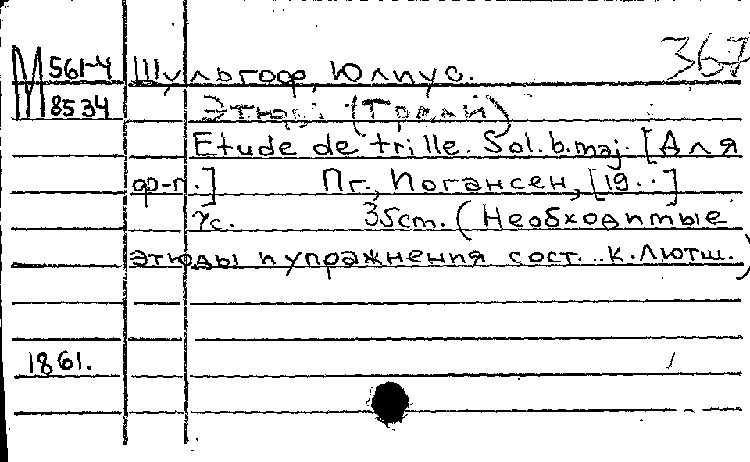 М 561-4 Шульгоф, Юлиус. 367
8534 Этюды (Трели)
Etude de trille. Sol. b. maj. [Для
ф-п.] Пг., Иогансен, [19..]
7с. 35cm. (Необходимые
этюды и упражнения сост. К. Лютш.)
1861. /